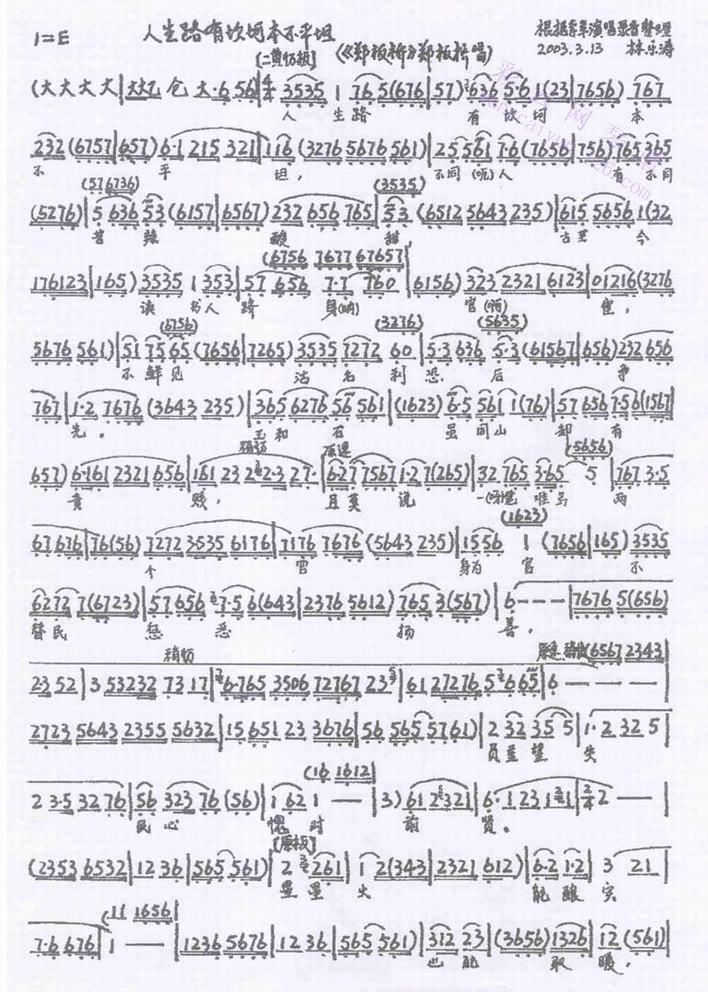 人生路有坎坷本不平坦
1=E
[二黄原板]
(《郑板桥》郑板桥唱)
2003.3.13
(大大大大 仓 大·6 56) 3535 1 76 5(676 57) 636 5·6 1(23 7656) 767
人 生路 有 坎坷 本
232 (6757 657) 6·1 215 321 116 (3276 5676 561) 25 561 7·6 (7656 756) 765 365
不 平 坦, 不同 (呃)人 有 不同
(576736) (3535)
(5276) 5 636 53 (6157 6567) 232 656 765 53 (6512 5643 235) 615 5656 1(32
苦 辣 酸 甜 古至 今
(6756 7677 67657)
176123 165) 3535 1 353 57 656 7·7 760 (6156) 323 2321 6123 01216 (3276
读 书人 跻 身(呐) 官(啊)
(6756) (3276) (5635)
5676 561) 51 75 65 (7656 7265) 3535 7272 60 5·3 636 5·3 (61567 656) 232 656
不 鲜见 沽 名 利 恐 后 争
767 1·2 7676 (3643 235) 365 6276 56 561 (1623) 6·5 561 1(76) 57 656 7·56 (1567
先。 玉和 石 虽 同山 却 有
稍慢 原速 (5656)
657) 6·161 2321 656 161 23 2·3 27· 627 7567 1·2 7(265) 32 765 3·65 5 767 3·5
贵 贱, 且莫 说 两
(1623)
67 676 76(56) 7272 3535 6176 7176 7676 (5643 235) 15 56 1 (7656 165) 3535
个 官 身为 官 不
6272 7(6723) 57 656 7·5 6(643 2376 5612) 765 3(567) 6--- 7676 5(656)
替民 惩 恶 扬 善,
稍慢 (6567 2343
23 52 3 53232 73 17 6·765 3506 72767 23 61 27276 5 6 65 6 ---
2723 5643 2355 5632 15 651 23 3676 56 565 5761) 2 32 35 5 1· 2 32 5
员重望 失
(16 1612)
2 3·5 32 76 56 323 76 (56) 1 62 1 -- 3) 61 2321 6· 1 23 1 2 --
民 心 愧 对 前 贤。
[原板]
(2353 6532 12 36 565 561) 2 261 1 2(343 2321 612) 6·2 1·2 3 21
星 星 火 能 酿 灾
(11 1656
7·6 676 1 -- 1236 5676 12 36 565 561) 312 23 (3656) 1326 12 (561)
也 能 取 暖,